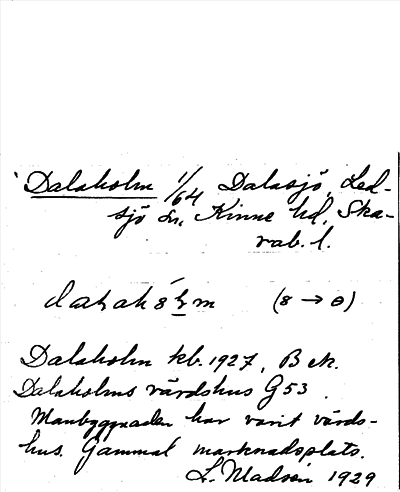 Dalaholm 1/64 Dalasjö, Led-
sjö sn, Kinne hd, Ska-
rab. l.
(8 → ɵ)
Dalaholm kb. 1927, B ek.
Dalaholms värdshus G 53.
Manbyggnaden har varit värds-
hus. Gammal marknadsplats.
L. Madsén 1929